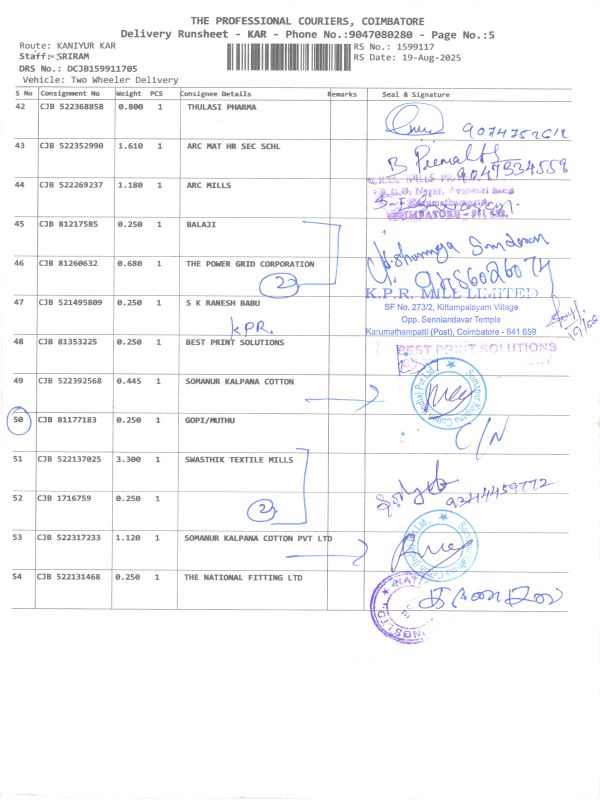 THE PROFESSIONAL COURIERS, COIMBATORE
Delivery Runsheet - KAR - Phone No.:9047080280 - Page No.:5
Route: KANIYUR KAR RS No.: 1599117
Staff:-SRIRAM RS Date: 19-Aug-2025
DRS No.: DCJB159911705
Vehicle: Two Wheeler Delivery
S No Consignment No Weight PCS Consignee Details Remarks Seal & Signature
42 CJB 522368858 0.800 1 THULASI PHARMA
43 CJB 522352990 1.610 1 ARC MAT HR SEC SCHL
9047934558
44 CJB 522269237 1.180 1 ARC MILLS
45 CJB 81217585 0.250 1 BALAJI
46 CJB 81260632 0.680 1 THE POWER GRID CORPORATION
2
K.P.R. MILL LIMITED
47 CJB 521495809 0.250 1 S K RANESH BABU
SF No. 273/2, Kittampalayam Village
Opp. Senniandavar Temple
KPR.
Karumathampatti (Post), Coimbatore - 641 659
48 CJB 81353225 0.250 1 BEST PRINT SOLUTIONS
BEST PRINT SOLUTIONS
49 CJB 522392568 0.445 1 SOMANUR KALPANA COTTON
Somanur Kalpana Cotton Mill Pvt Ltd
50 CJB 81177183 0.250 1 GOPI/MUTHU
C/N
51 CJB 522137025 3.300 1 SWASTHIK TEXTILE MILLS
52 CJB 1716759 0.250 1
2
9344459772
53 CJB 522317233 1.120 1 SOMANUR KALPANA COTTON PVT LTD
54 CJB 522131468 0.250 1 THE NATIONAL FITTING LTD